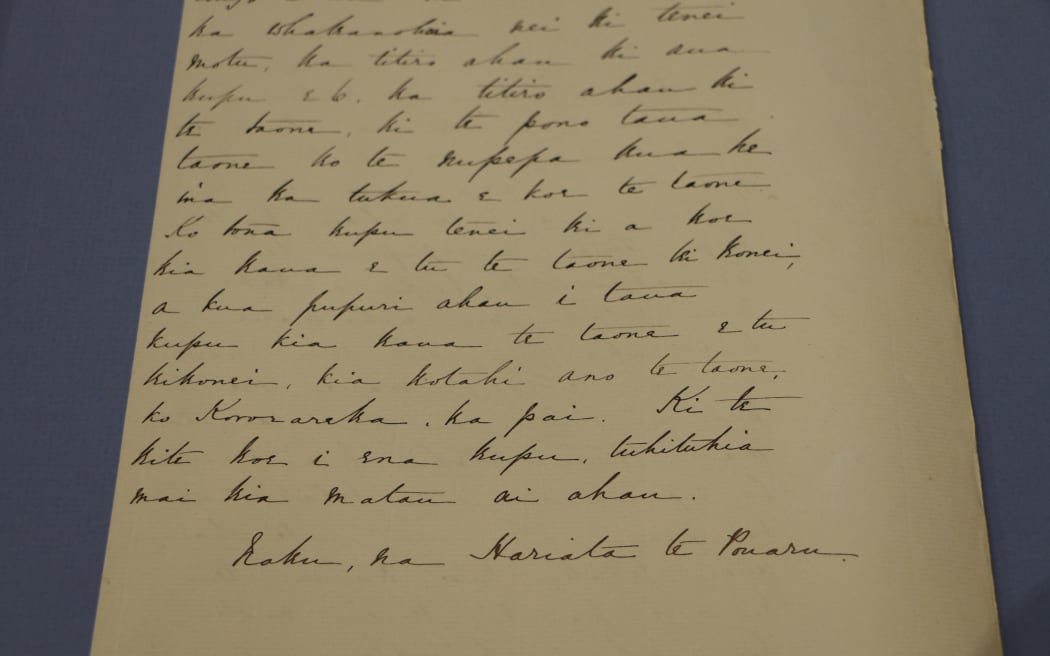 ka whakanohoia nei ki tenei
motu, ka titiro ahau ki aua
kupu e 6. ka titiro ahau ki
te taone, ki te pono taua
taone ko te nupepa kua he
ina ka tukua e koe te taone
Ko tona kupu tenei ki a koe
kia kaua e tu te taone ki konei,
a kua pupuri ahau i taua
kupu kia kaua te taone e tu
kikonei, kia kotahi ano te taone,
ko Kororareka, ka pai. Ki te
kite koe i ena kupu, tuhituhia
mai kia matau ai ahau.
Naku, na Hariata te Pouaru.